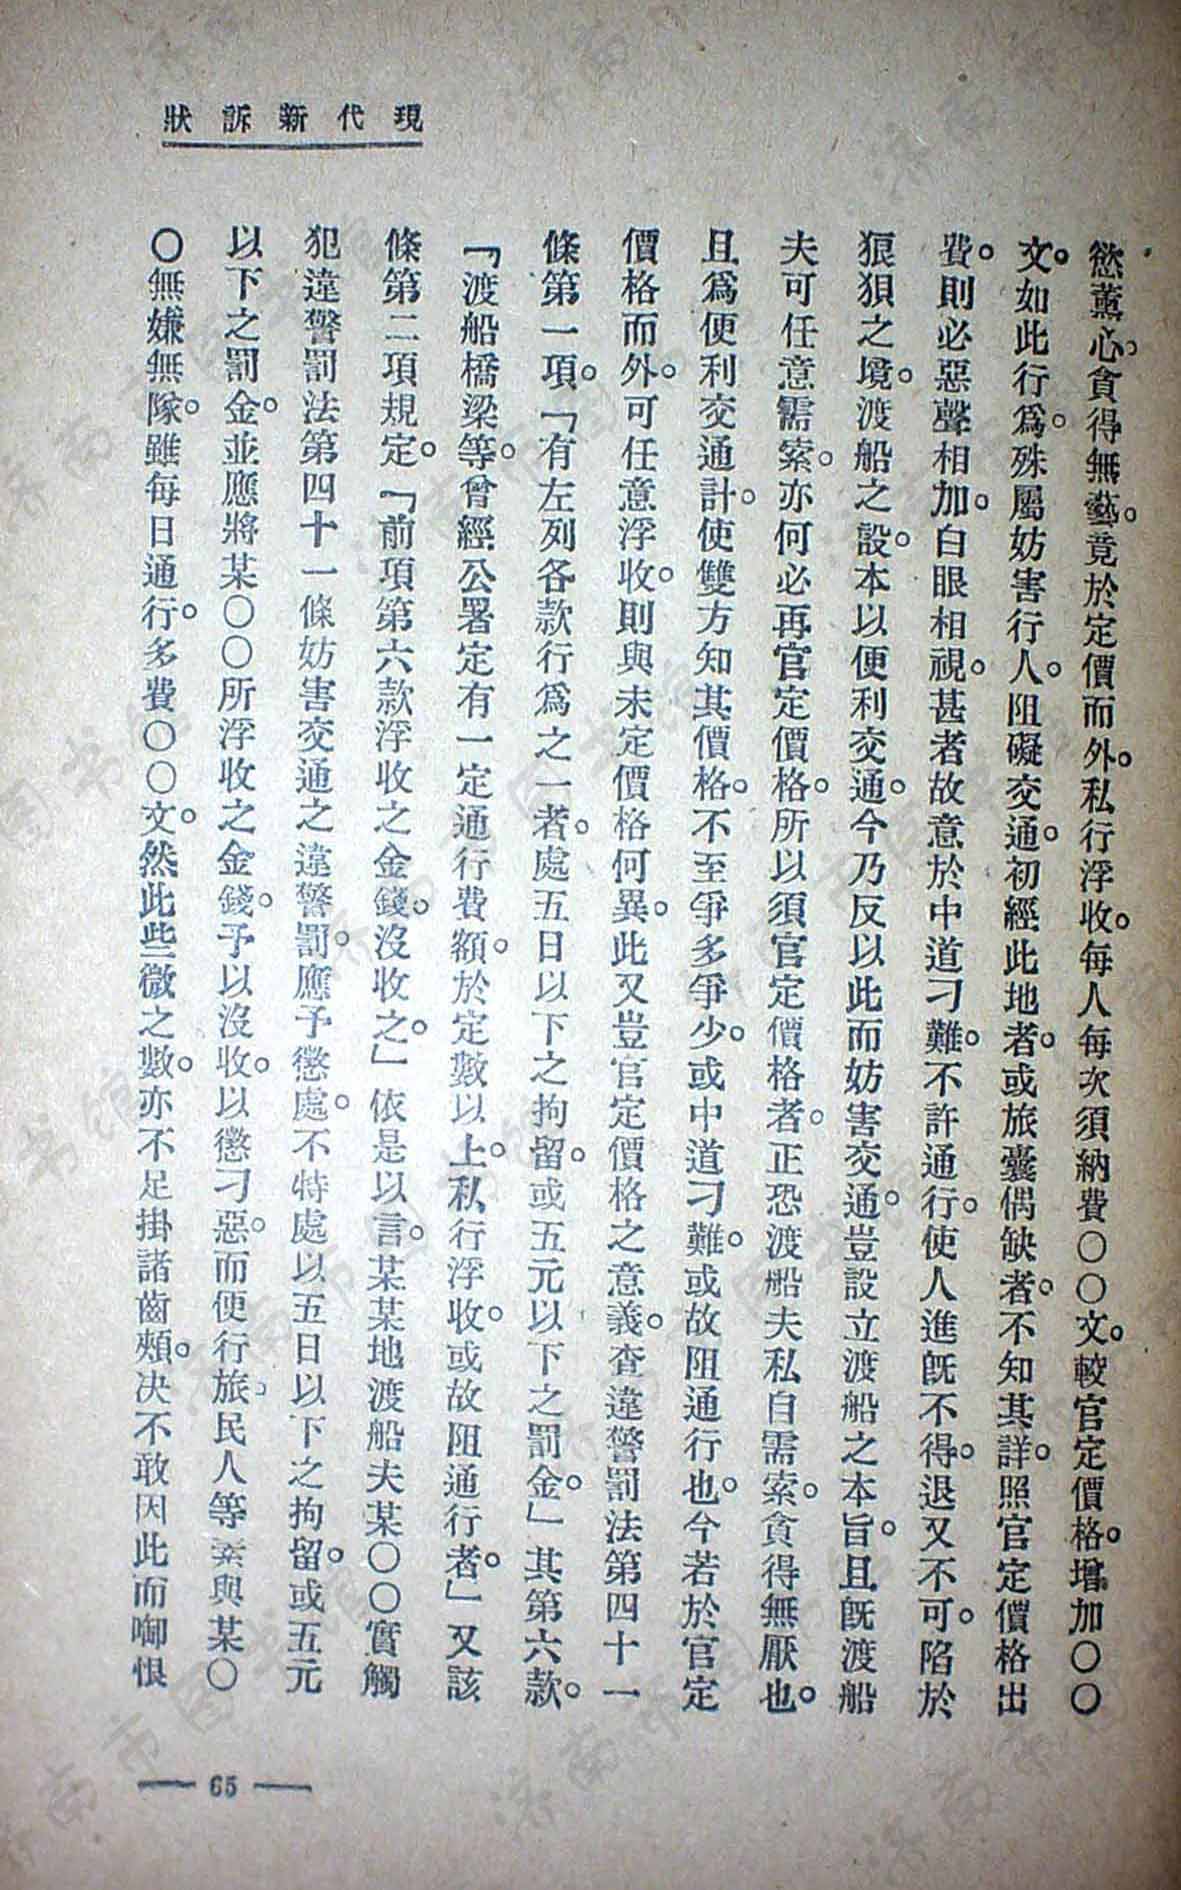 現代新訴狀
慾薰心。貪得無藝。竟於定價而外。私行浮收。每人每次須納費〇〇文。較官定價格。增加〇〇
文。如此行爲。殊屬妨害行人。阻礙交通。初經此地者。或旅囊偶缺者。不知其詳。照官定價格出
費。則必惡聲相加。白眼相視。甚者故意於中道刁難。不許通行。使人進旣不得。退又不可。陷於
狼狽之境。渡船之設。本以便利交通。今乃反以此而妨害交通。豈設立渡船之本旨。且旣渡船
夫可任意需索。亦何必再官定價格。所以須官定價格者。正恐渡船夫私自需索。貪得無厭也。
且爲便利交通計。使雙方知其價格。不至爭多爭少。或中道刁難。或故阻通行也。今若於官定
價格而外。可任意浮收。則與未定價格何異。此又豈官定價格之意義。查違警罰法第四十一
條第一項。「有左列各款行爲之一者。處五日以下之拘留。或五元以下之罰金。」其第六款。
「渡船橋梁等。曾經公署定有一定通行費額。於定數以上。私行浮收。或故阻通行者。」又該
條第二項規定。「前項第六款浮收之金錢。沒收之。」依是以言。某某地渡船夫某〇〇實觸
犯違警罰法第四十一條妨害交通之違警罰。應予懲處。不特處以五日以下之拘留。或五元
以下之罰金。並應將某〇〇所浮收之金錢。予以沒收。以懲刁惡。而便行旅。民人等素與某〇
〇無嫌無隙。雖每日通行。多費〇〇文。然此些微之數。亦不足掛諸齒頰。決不敢因此而啣恨
— 65 —